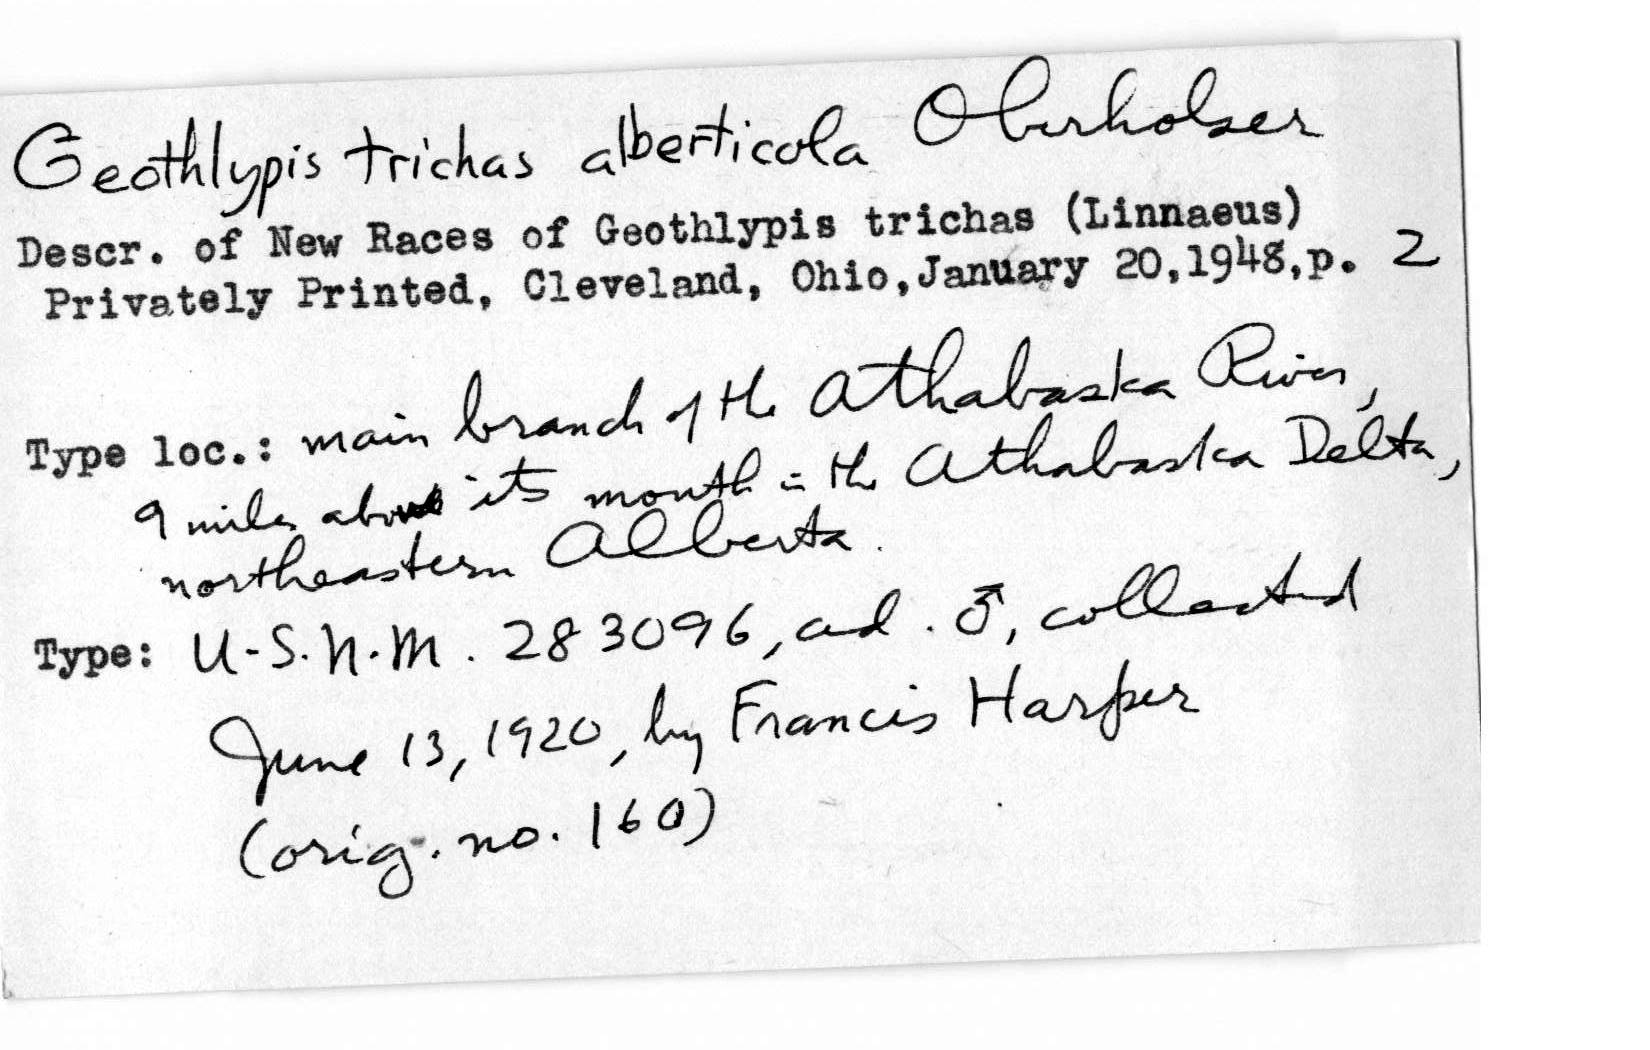 Geothlypis trichas alberticola Oberholser
Descr. of New Races of Geothlypis trichas (Linnaeus)
Privately Printed, Cleveland, Ohio, January 20, 1948, p. 2
Type loc.: main branch of the Athabaska River,
9 miles above its mouth in the Athabaska Delta,
northeastern Alberta.
Type: U.S.N.M. 283096, ad. ♂, collected
June 13, 1920, by Francis Harper
(orig. no. 160)